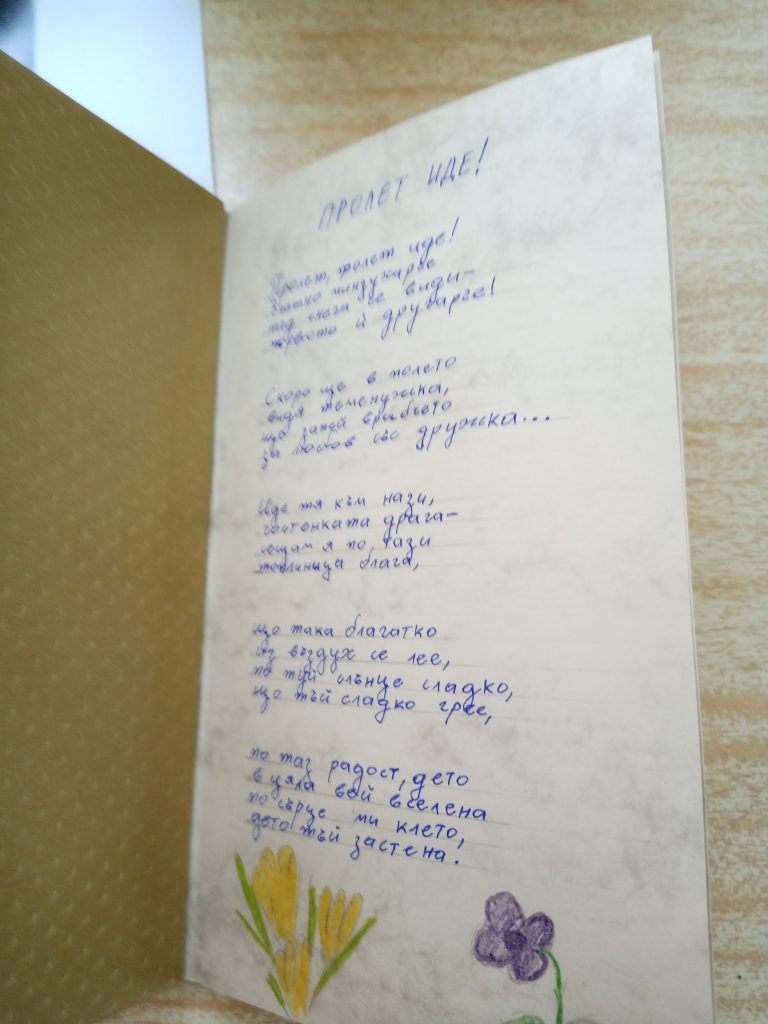 ПРОЛЕТ ИДЕ!
Пролет, пролет иде!
Златно минзухарче
под снега се види –
първото ѝ другарче!
Скоро ще в полето
видя теменужка,
що запей врабчето
за любов със дружка...
Иде тя към нази,
гостенката драга –
сещам я по тази
топлиница блага,
що така благатко
из въздух се лее,
по туй слънце сладко,
що тъй сладко грее,
по таз радост, дето
в цяла вей вселена
по сърце ми клето,
дето тъй застена.